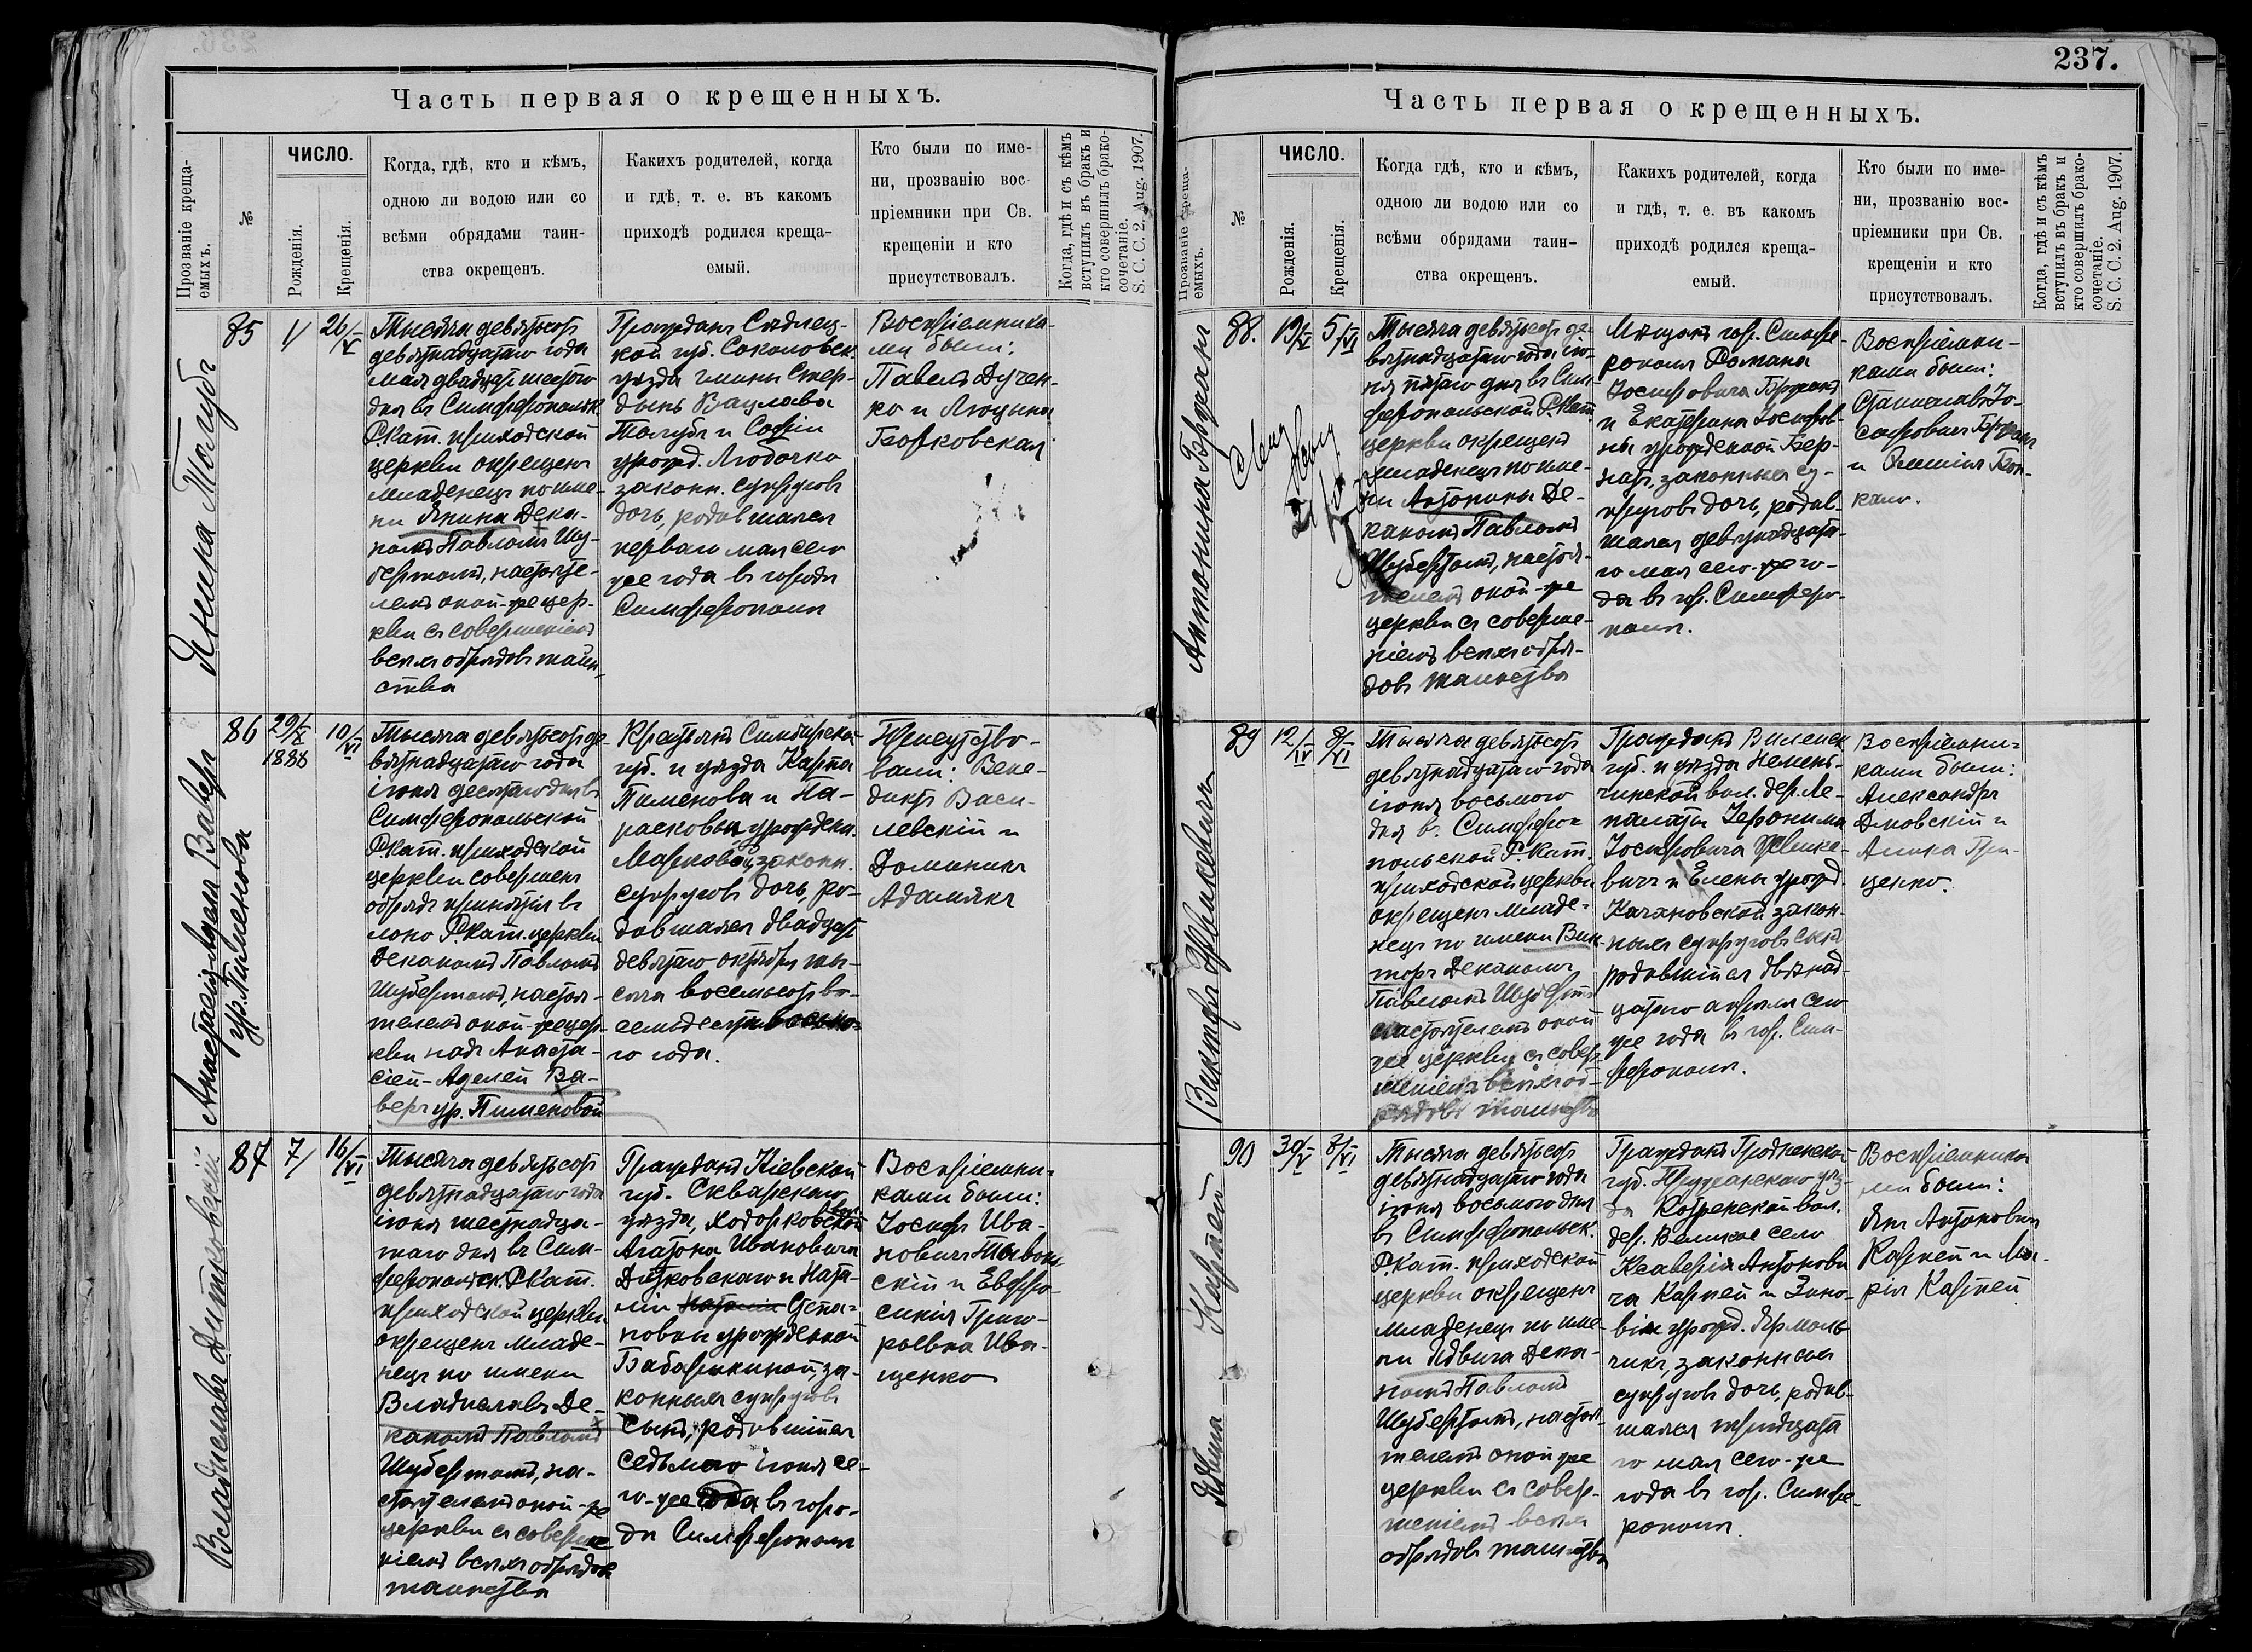 Часть первая о крещенныхъ.
Прозваніе креща-
емыхъ.
№
ЧИСЛО.
Рожденія.
Крещенія.
Когда, гдѣ, кто и кѣмъ,
одною ли водою или со
всѣми обрядами таин-
ства окрещенъ.
Какихъ родителей, когда
и гдѣ, т. е. въ какомъ
приходѣ родился креща-
емый.
Кто были по име-
ни, прозванію вос-
пріемники при Св.
крещеніи и кто
присутствовалъ.
Когда, гдѣ и съ кѣмъ
вступилъ въ бракъ и
кто совершилъ брако-
сочетаніе.
S. C. C. 2. Aug. 1907.
Янина Голубъ
85
1/
26/V
Тысяча девятьсотъ
девятнадцатаго года
мая двадцать шестого
дня въ Симферопольск.
Р. Кат. приходской
церкви окрещенъ
младенецъ по име-
ни Янина Дека-
номъ Павломъ Шу-
бертомъ, настояте-
лемъ оной-же цер-
кви съ совершеніемъ
всѣхъ обрядовъ таин-
ства
Гражданъ Сѣдлец-
кой губ. Соколовск.
уѣзда гмины Стер-
дынь Вацлава
Голубъ и Софіи
урожд. Людочка
законн. супруговъ
дочь, родившаяся
перваго мая сего
же года въ городѣ
Симферополѣ
Воспріемника-
ми были:
Павелъ Дучен-
ко и Люцына
Борковская
Анастасія-Аделя Ваверъ
ур. Пименова
86
29/X
1888
10/VI
Тысяча девятьсотъ де-
вятнадцатаго года
іюня десятаго дня въ
Симферопольской
Р. Кат. приходской
церкви совершенъ
обрядъ принятія въ
лоно Р. Кат. церкви
Деканомъ Павломъ
Шубертомъ, настоя-
телемъ оной-же цер-
кви надъ Анаста-
сіей-Аделей Ва-
веръ ур. Пименовой
Крестьянъ Симбирской
губ. и уѣзда Карпа
Пименова и Па-
расковьи урожден.
Марковой, законн.
супруговъ дочь, ро-
дившаяся двадцать
девятаго октября ты-
сяча восемьсотъ во-
семьдесятъ восьмо-
го года.
Присутство-
вали: Вене-
диктъ Васи-
левскій и
Доминикъ
Адамякъ
Владиславъ Дитковскій
87
7/
16/VI
Тысяча девятьсотъ
девятнадцатаго года
іюня шестнадца-
таго дня въ Сим-
феропольск. Р. Кат.
приходской церкви
окрещенъ младе-
нецъ по имени
Владиславъ Де-
каномъ Павломъ
Шубертомъ, на-
стоятелемъ оной-же
церкви съ соверше-
ніемъ всѣхъ обрядовъ
таинства
Гражданъ Кіевской
губ. Сквирскаго
уѣзда, Ходорковской
Агатона Ивановича
Дитковскаго и Ната-
ліи Степа-
новны урожденной
Бабарыкиной, за-
конныхъ супруговъ
сынъ, родившійся
седьмого іюня се-
го-же года въ горо-
дѣ Симферополѣ
Воспріемни-
ками были:
Іосифъ Ива-
новичъ
и Евфро-
синія Григо-
рьевна Ива-
щенко
237.
Часть первая о крещенныхъ.
Прозваніе креща-
емыхъ.
№
ЧИСЛО.
Рожденія.
Крещенія.
Когда гдѣ, кто и кѣмъ,
одною ли водою или со
всѣми обрядами таин-
ства окрещенъ.
Какихъ родителей, когда
и гдѣ, т. е. въ какомъ
приходѣ родился креща-
емый.
Кто были по име-
ни, прозванію вос-
пріемники при Св.
крещеніи и кто
присутствовалъ.
Когда, гдѣ и съ кѣмъ
вступилъ въ бракъ и
кто совершилъ брако-
сочетаніе.
S. C. C. 2. Aug. 1907.
Антонина
88.
19/V
5/VI
Тысяча девятьсотъ де-
вятнадцатаго года ію-
ня пятаго дня въ Сим-
феропольской Р. Кат.
церкви окрещенъ
младенецъ по име-
ни Антонина Де-
каномъ Павломъ
Шубертомъ, настоя-
телемъ оной-же
церкви съ соверше-
ніемъ всѣхъ обря-
довъ таинства
Мѣщанъ гор. Симфе-
рополя Романа
Іосифовича
и Екатерины Іосифов-
ны урожденной Бер-
натъ, законныхъ су-
пруговъ дочь, родив-
шаяся девятнадцата-
го мая сего-же го-
да въ гор. Симферо-
полѣ.
Воспріемни-
ками были:
Станиславъ Іо-
сифовичъ
и
Викторъ Юшкевичъ
89
12/IV
8/VI
Тысяча девятьсотъ
девятнадцатаго года
іюня восьмого
дня въ Симферо-
польской Р. Кат.
приходской церкви
окрещенъ младе-
нецъ по имени Вик-
торъ Деканомъ
Павломъ Шубертомъ
настоятелемъ оной
же церкви съ совер-
шеніемъ всѣхъ об-
рядовъ таинства
Гражданъ Виленск.
губ. и уѣзда Немен-
чинской вол. дер. Ле-
палаты Іеронима
Іосифовича Юшке-
вичъ и Елены урожд.
Качановской закон-
ныхъ супруговъ сынъ
родившійся двѣнад-
цатаго апрѣля сего
же года въ гор. Сим-
ферополѣ.
Воспріемни-
ками были:
Александръ
Дмовскій и
Алина Гри-
ценко.
Ядвига Карпей
90
30/V
8/VI
Тысяча девятьсотъ
девятнадцатаго года
іюня восьмого дня
въ Симферопольск.
Р. Кат. приходской
церкви окрещенъ
младенецъ по име-
ни Ядвига Дека-
номъ Павломъ
Шубертомъ, настоя-
телемъ оной же
церкви съ совер-
шеніемъ всѣхъ
обрядовъ таинства
Гражданъ Гродненской
губ. Пружанскаго уѣз-
да вол.
дер. Великое село
Ксаверія Антонови-
ча Карпей и Зино-
віи урожд. Ярмоль-
чикъ, законныхъ
супруговъ дочь, родив-
шаяся тридцата-
го мая сего-же
года въ гор. Симфе-
рополѣ.
Воспріемника-
ми были:
Янъ Антоновичъ
Карпей и Ма-
рія Карпей